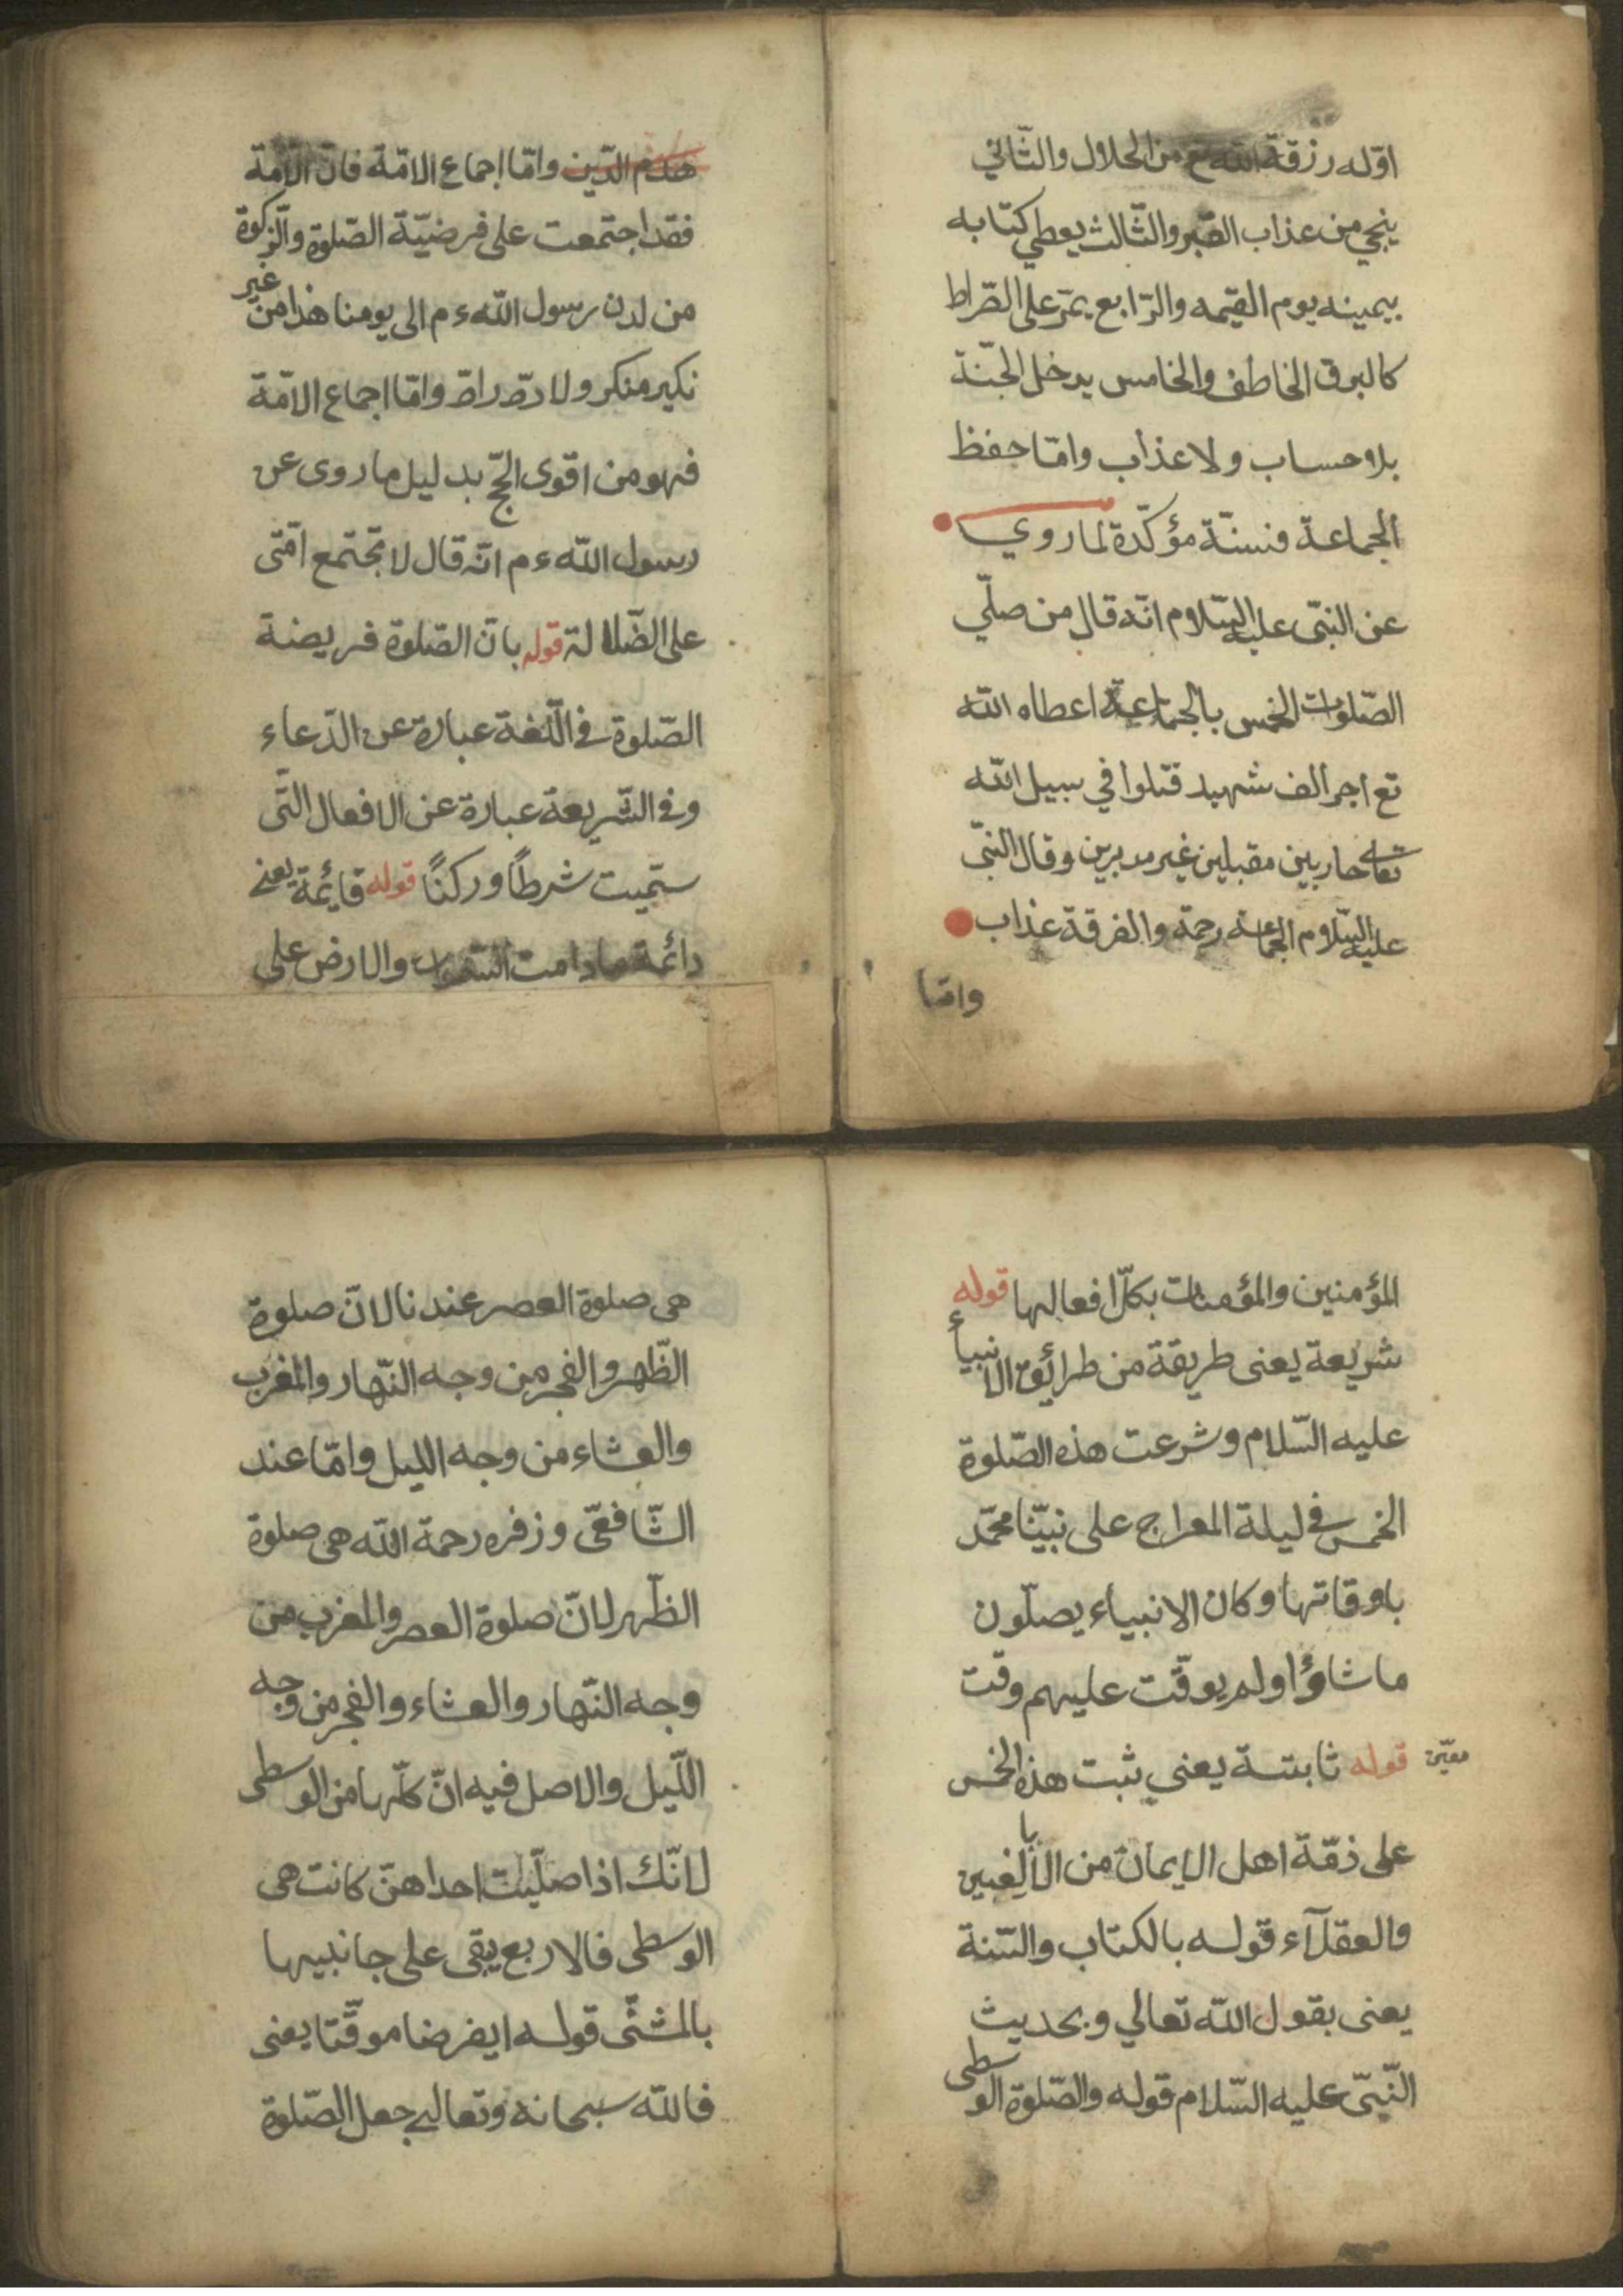 اوّله رزقة الله تع من الحلال والثّاني
ينجي من عذاب القبر والثّالث يعطي كتابه
بيمينه يوم القيمه والرّابع يمرّ على الصّراط
كالبرق الخاطف والخامس يدخل الجنّة
بلا حساب ولا عذاب وامّا حفظ
الجماعة فسنّة مؤكّدة لما روي
عن النبيّ عليه السّلام انّه قال من صلّي
الصّلوات الخمس بالجماعة اعطاه الله
تع اجر الف شهيد قتلوا في سبيل الله
حاربين مقبلين غير مدبرين وقال النبيّ
عليه السّلام الجماعة رحمة والفرقة عذاب
وامّا
هدم الدّين وامّا اجماع الامّة فانّ الامّة
فقد اجتمعت على فرضيّة الصّلوة والزّكوة
من لدن رسول الله ءم الى يومنا هذا من غير
نكير منكر ولا ردّ رادّ وامّا اجماع الامّة
فهو من اقوى الحجّ بدليل ما روى عن
رسول الله ءم انّه قال لا تجتمع امّتى
على الضّلالة قوله بانّ الصّلوة فريضة
الصّلوة في اللّغة عبارة عن الدّعاء
وفي الشّريعة عبارة عن الافعال الّتى
سمّيت شرطاً وركناً قوله قايمة يعنى
دائمة مادامت السّموات والارض على
المؤمنين والمؤمنات بكلّ افعالها قوله
شريعة يعنى طريقة من طرائق الانبياء
عليه السّلام وشرعت هذه الصّلوة
الخمس في ليلة المعراج على نبيّنا محمّد
باوقاتها وكان الانبياء يصلّون
ما شاؤا ولم يوقّت عليهم وقت
معيّن
قوله ثابتة يعني يثبت هذه الخمس
على ذمّة اهل الايمان من البالغين
والعقلآء قوله بالكتاب والسّنة
يعنى بقول الله تعالي وبحديث
النّبيّ عليه السّلام قوله والصّلوة الوسطى
هى صلوة العصر عندنا لانّ صلوة
الظّهر والفجر من وجه النّهار والمغرب
والعشاء من وجه الليل وامّا عند
الشّافعىّ وزفره رحمة الله هى صلوة
الظّهر لانّ صلوة العصر والمغرب من
وجه النّهار والعشاء والفجر من وجه
اللّيل والاصل فيه انّ كلّها من الوسطى
لانّك اذا صلّيت احداهنّ كانت هى
الوسطى فالاربع يبقى على جانبيها
بالمثنّى قوله ايفرضا موقّتا يعنى
فالله سبحانه وتعالي جعل الصّلوة